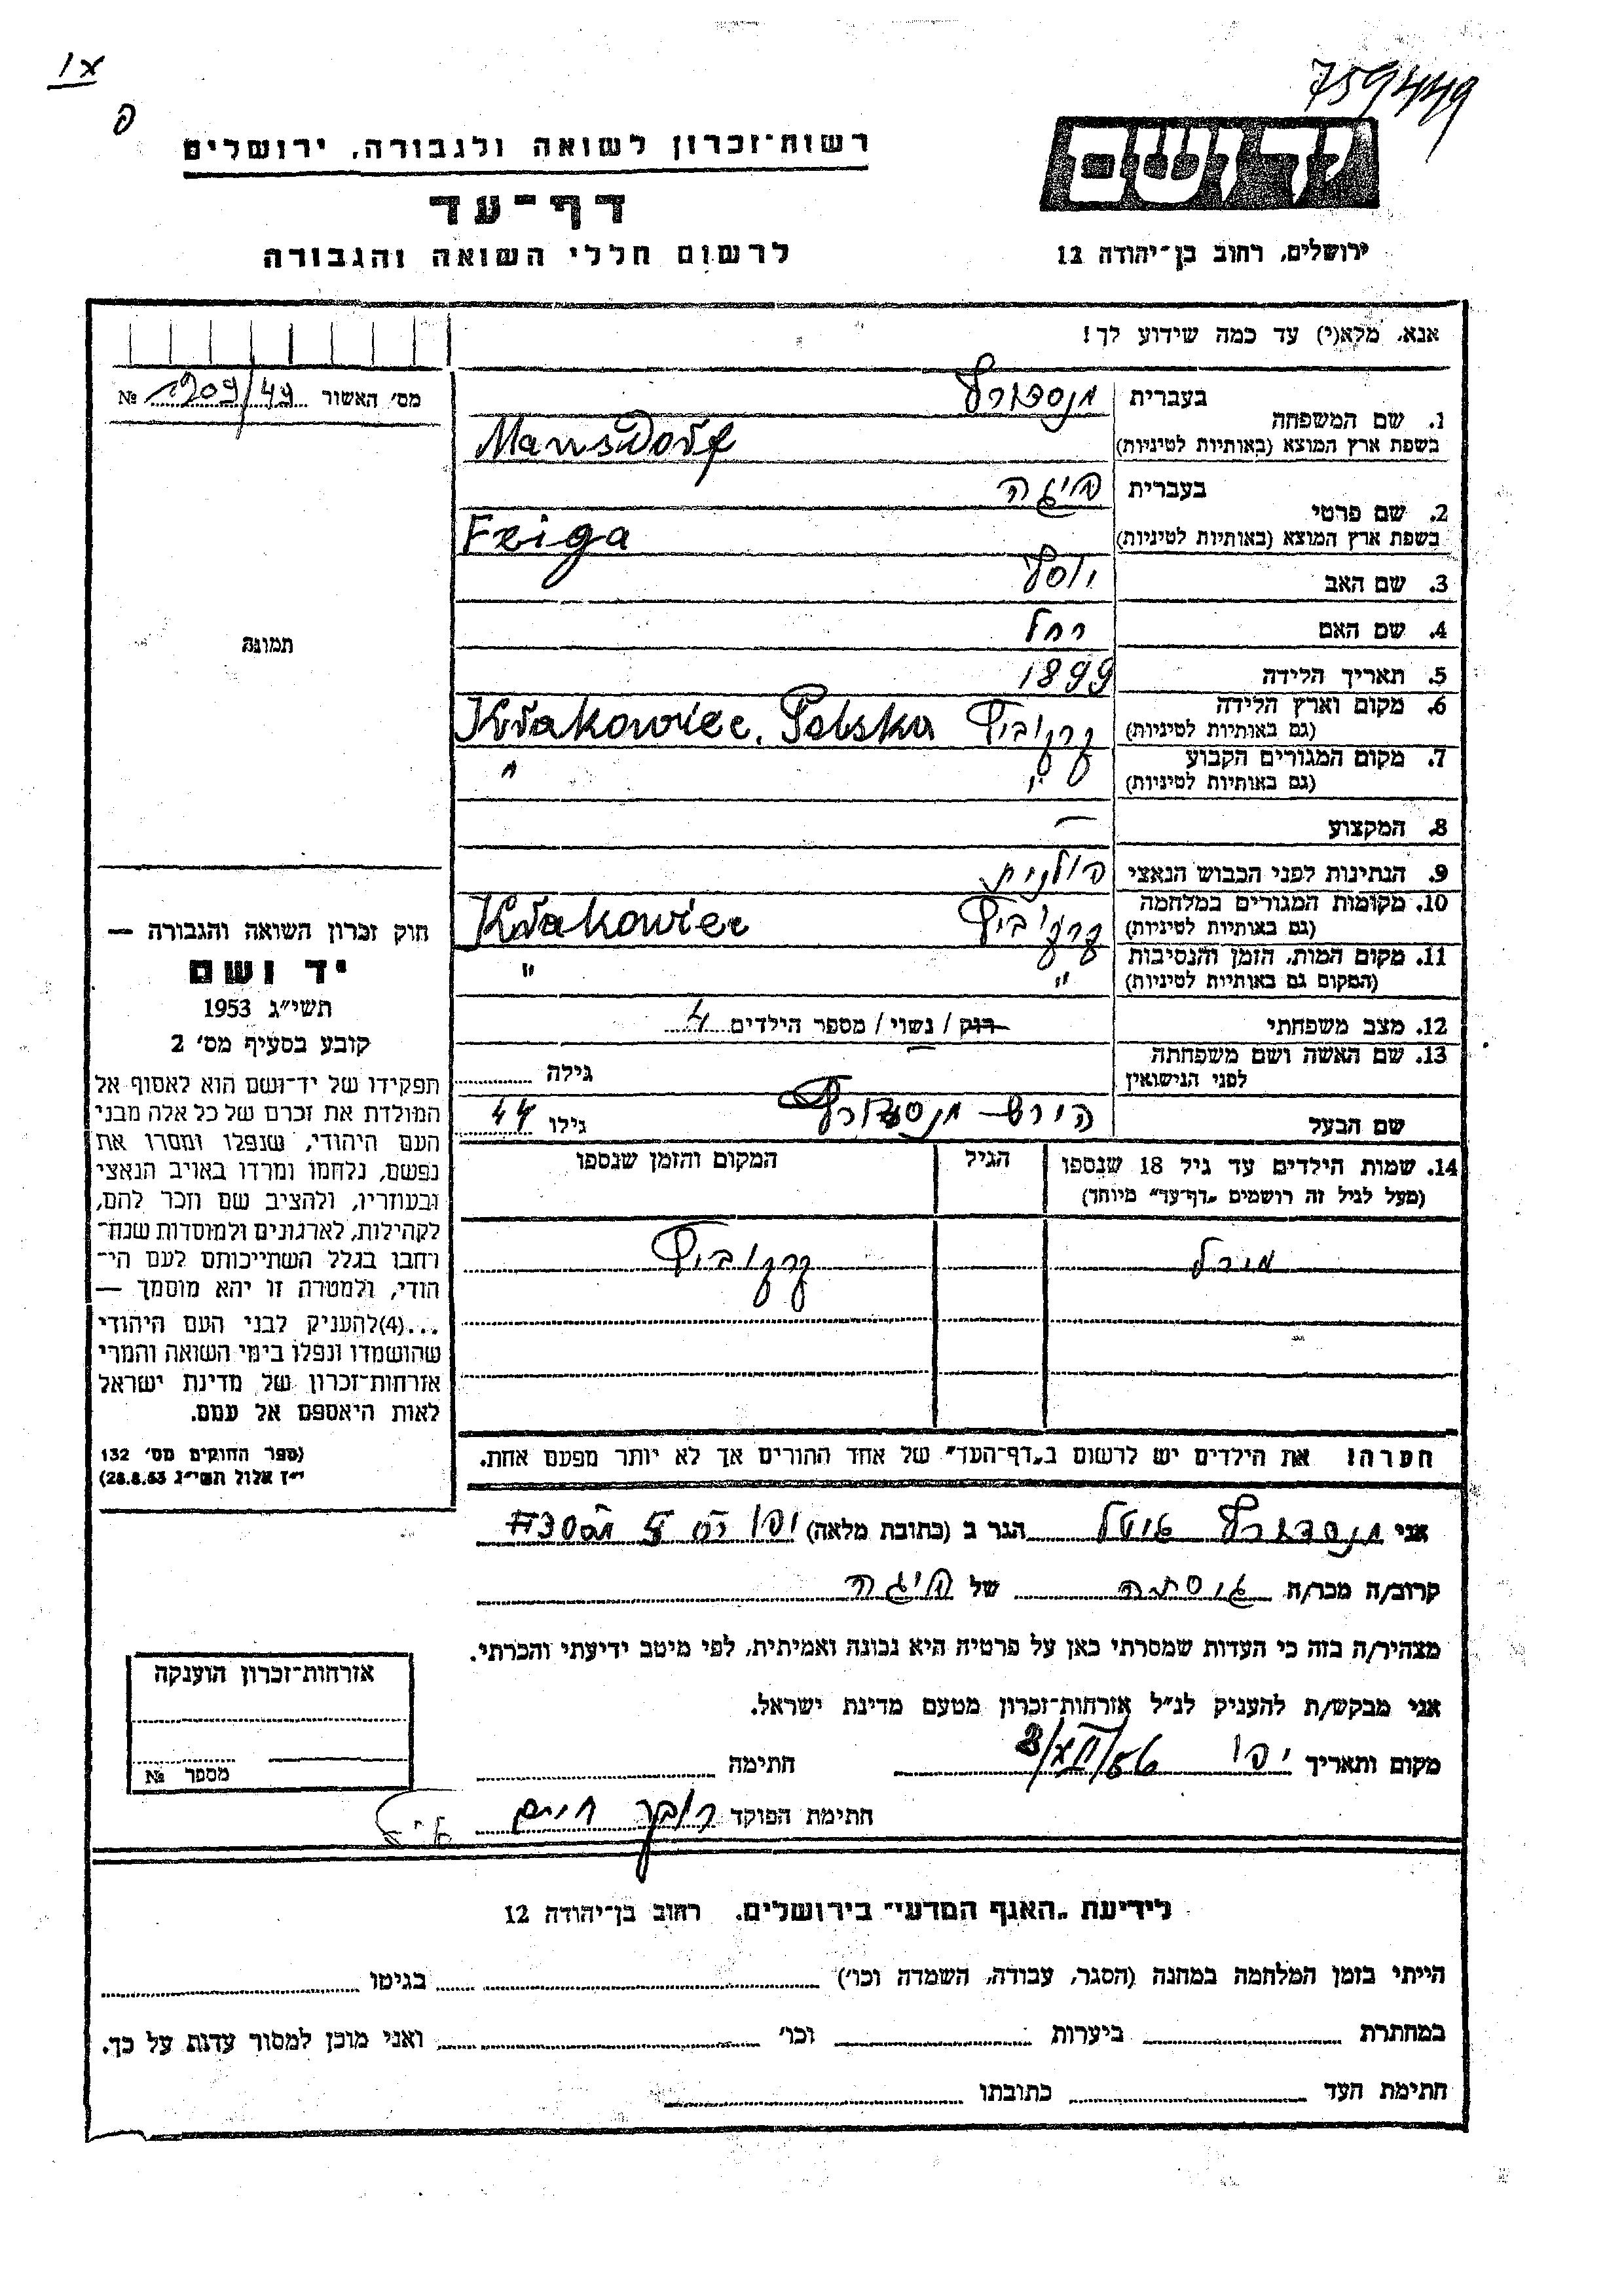 759449
רשות־זכרון לשואה ולגבורה, ירושלים
דף־עד
לרשום חללי השואה והגבורה
יד ושם
ירושלים, רחוב בן־יהודה 12
אנא, מלא(י) עד כמה שידוע לך!
מס׳ האשור 1209/49 №
תמונה
1. שם המשפחה
בעברית מנסדורף
בשפת ארץ המוצא (באותיות לטיניות) Mansdorf
2. שם פרטי
בעברית פיגה
בשפת ארץ המוצא (באותיות לטיניות) Feiga
3. שם האב יוסף
4. שם האם רחל
5. תאריך הלידה 1899
6. מקום וארץ הלידה קרקוביץ Krakowiec, Polska
(גם באותיות לטיניות)
7. מקום המגורים הקבוע " "
(גם באותיות לטיניות)
8. המקצוע —
9. הנתינות לפני הכבוש הנאצי פולנית
10. מקומות המגורים במלחמה קרקוביץ Krakowiec
(גם באותיות לטיניות)
11. מקום המות, הזמן והנסיבות " "
(המקום גם באותיות לטיניות)
12. מצב משפחתי רוק / נשוי / מספר הילדים 4
13. שם האשה ושם משפחתה
לפני הנישואין גילה
שם הבעל הירש מנסדורף גילו 44
14. שמות הילדים עד גיל 18 שנספו הגיל המקום והזמן שנספו
(מעל לגיל זה רושמים „דף־עד״ מיוחד)
מירל קרקוביץ
הערה! את הילדים יש לרשום ב„דף־העד״ של אחד ההורים אך לא יותר מפעם אחת.
חוק זכרון השואה והגבורה —
יד ושם
תשי״ג 1953
קובע בסעיף מס׳ 2
תפקידו של יד־ושם הוא לאסוף אל
המולדת את זכרם של כל אלה מבני
העם היהודי, שנפלו ומסרו את
נפשם, נלחמו ומרדו באויב הנאצי
ובעוזריו, ולהציב שם וזכר להם,
לקהילות, לארגונים ולמוסדות שנח־
רבו בגלל השתייכותם לעם הי־
הודי, ולמטרה זו יהא מוסמך —
...(4)להעניק לבני העם היהודי
שהושמדו ונפלו בימי השואה והמרי
אזרחות־זכרון של מדינת ישראל
לאות היאספם אל עמם.
(ספר החוקים מס׳ 132
י״ז אלול תשי״ג 28.8.53)
אני מנסדורף הגר ב (כתובת מלאה) יפו
קרוב/ה מכר/ה גיסתה של פיגה
מצהיר/ה בזה כי העדות שמסרתי כאן על פרטיה היא נכונה ואמיתית, לפי מיטב ידיעתי והכרתי.
אני מבקש/ת להעניק לנ״ל אזרחות־זכרון מטעם מדינת ישראל.
מקום ותאריך יפו 8/XII/56 חתימה
חתימת הפוקד חיים
אזרחות־זכרון הוענקה
מספר №
לידיעת „האגף המדעי״ בירושלים. רחוב בן־יהודה 12
הייתי בזמן המלחמה במחנה (הסגר, עבודה, השמדה וכו׳) בגיטו
במחתרת ביערות וכו׳ ואני מוכן למסור עדות על כך.
חתימת העד כתובתו